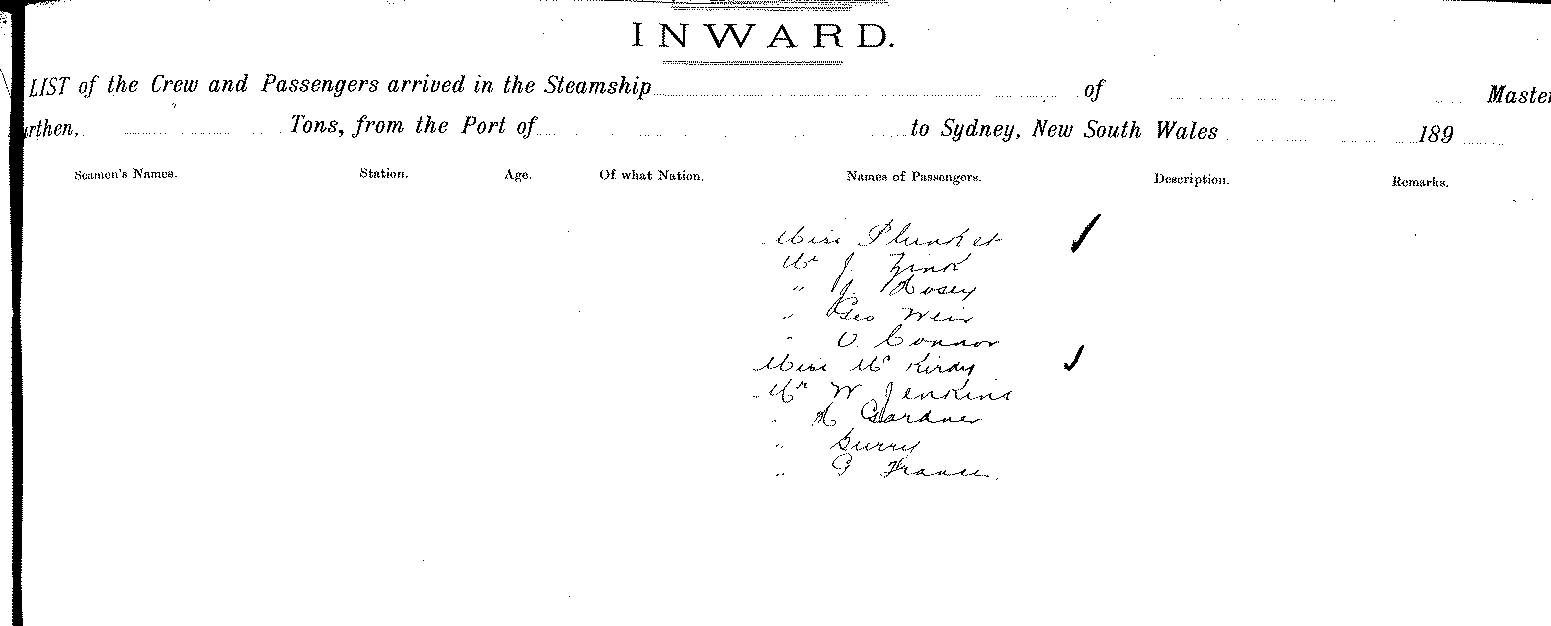 INWARD.
LIST of the Crew and Passengers arrived in the Steamship of Master
urthen, Tons, from the Port of to Sydney, New South Wales 189
Seamen's Names. Station. Age. Of what Nation. Names of Passengers. Description. Remarks.
Miss Plunket ✓
Mr J. Zink
" J. Hosey
" Geo Weir
" O. Connor
Miss Mc Kirdy ✓
Mr W Jenkins
" H Gardner
" Gurry
" G